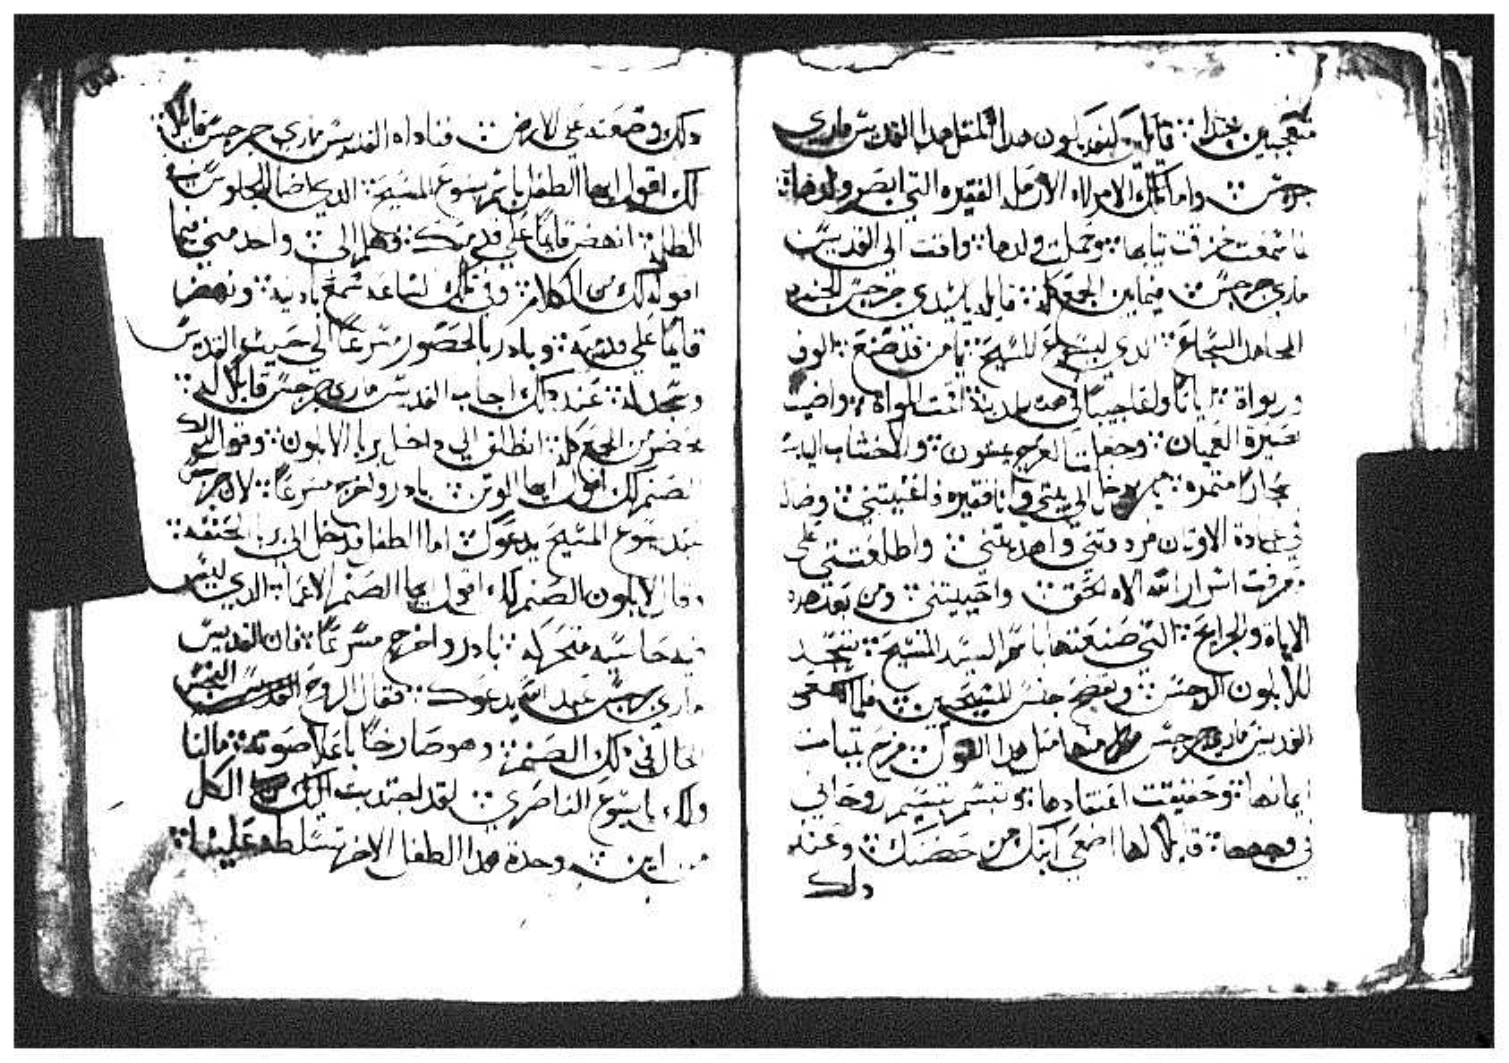 متعجبين جدا ܀ قايلين لنعدلون هدا المثل هدا القديس ماري
جرجس ܀ واما تلك الامراه الارمله الفقيره التي ابصر ولدها ܀
لما سمعت خزقت تيابها ܀ وحملت ولدها ܀ وافت الي القديس
ماري جرجس ܀ فيما بين الجمع كله ܀ قايله يا سيدي جرجس الجندي
المجاهد الشجاع ܀ الدي ليسوع المسيح ܀ يا من قد صنع الوف
وربواة اياتا واعاجيبا في هده المدينة اقمت المواة ܀ واضيت
بصيرة العميان ܀ وجعلت العرج يمشون ܀ والاخشاب اليابسه
اشجارا متمره ܀ دخل الي بيتي وانا فقيره فاغنيتني ܀ وضاله
في عبادة الاوتان فرددتني واهديتني ܀ واطلعتني علي
معرفت اسرار الله الاه الحق ܀ واحييتني ܀ ومن بعد هده
الاياة والجرايح ܀ التي صنعتها باسم السيد المسيح ܀ تسجد
للابلون النجس ܀ وتفضح جنس المسيحيين ܀ فلما سمع
القديس ماري جرجس منها متل هدا القول ܀ فرح بتبات
ايمانها ܀ وحقيقت اعتقادها ܀ وتبسم تبسيم روحاني
في وجهها ܀ قايلا لها اضعي ابنك من حضنك ܀ وعند
دلك
دلك وضعته علي الارض ܀ فناداه القديس ماري جرجس قايلا ܀
لك اقول ايها الطفل باسم يسوع المسيح ܀ الدي اضا الجلوس في
الظلمه ܀ انهض قايما علي قدميك ܀ فهلم الي ܀ واحد مني فيما
اقوله لك من الكلام ܀ وفي تلك الساعه سمع بادنيه ܀ ونهض
قايما علي قدميه ܀ وبادر بالحضور مسرعا الي حيت القديس
وسجد له ܀ عند دلك اجاب القديس ماري جرجس قايلا له ܀
بحضرت الجمع كله ܀ انطلق الي داخل بربا الابلون ܀ وقول لدلك
الصنم لك اقول ايها الوتن ܀ بادر واخرج مسرعا ܀ لان جرجس
عبد يسوع المسيح يدعوك ܀ اما الطفل فدخل الي بربا الحنفه ܀
وقال لابلون الصنم لك اقول ايها الصنم الاعما ܀ الدي ليس
فيه حاسيه متحركه ܀ بادر واخرج مسرعا ܀ فان القديس
ماري جرجس عبد الله يدعوك ܀ فقال الروح النجس
الحال في دلك الصنم ܀ وهو صارخا باعلا صوته ܀ مالنا
ولك يا يسوع الناصري ܀ لقد اجتدبت اليك الكل
من اين ܀ وحدة هدا الطفل الاخر تسلطه علينا ܀